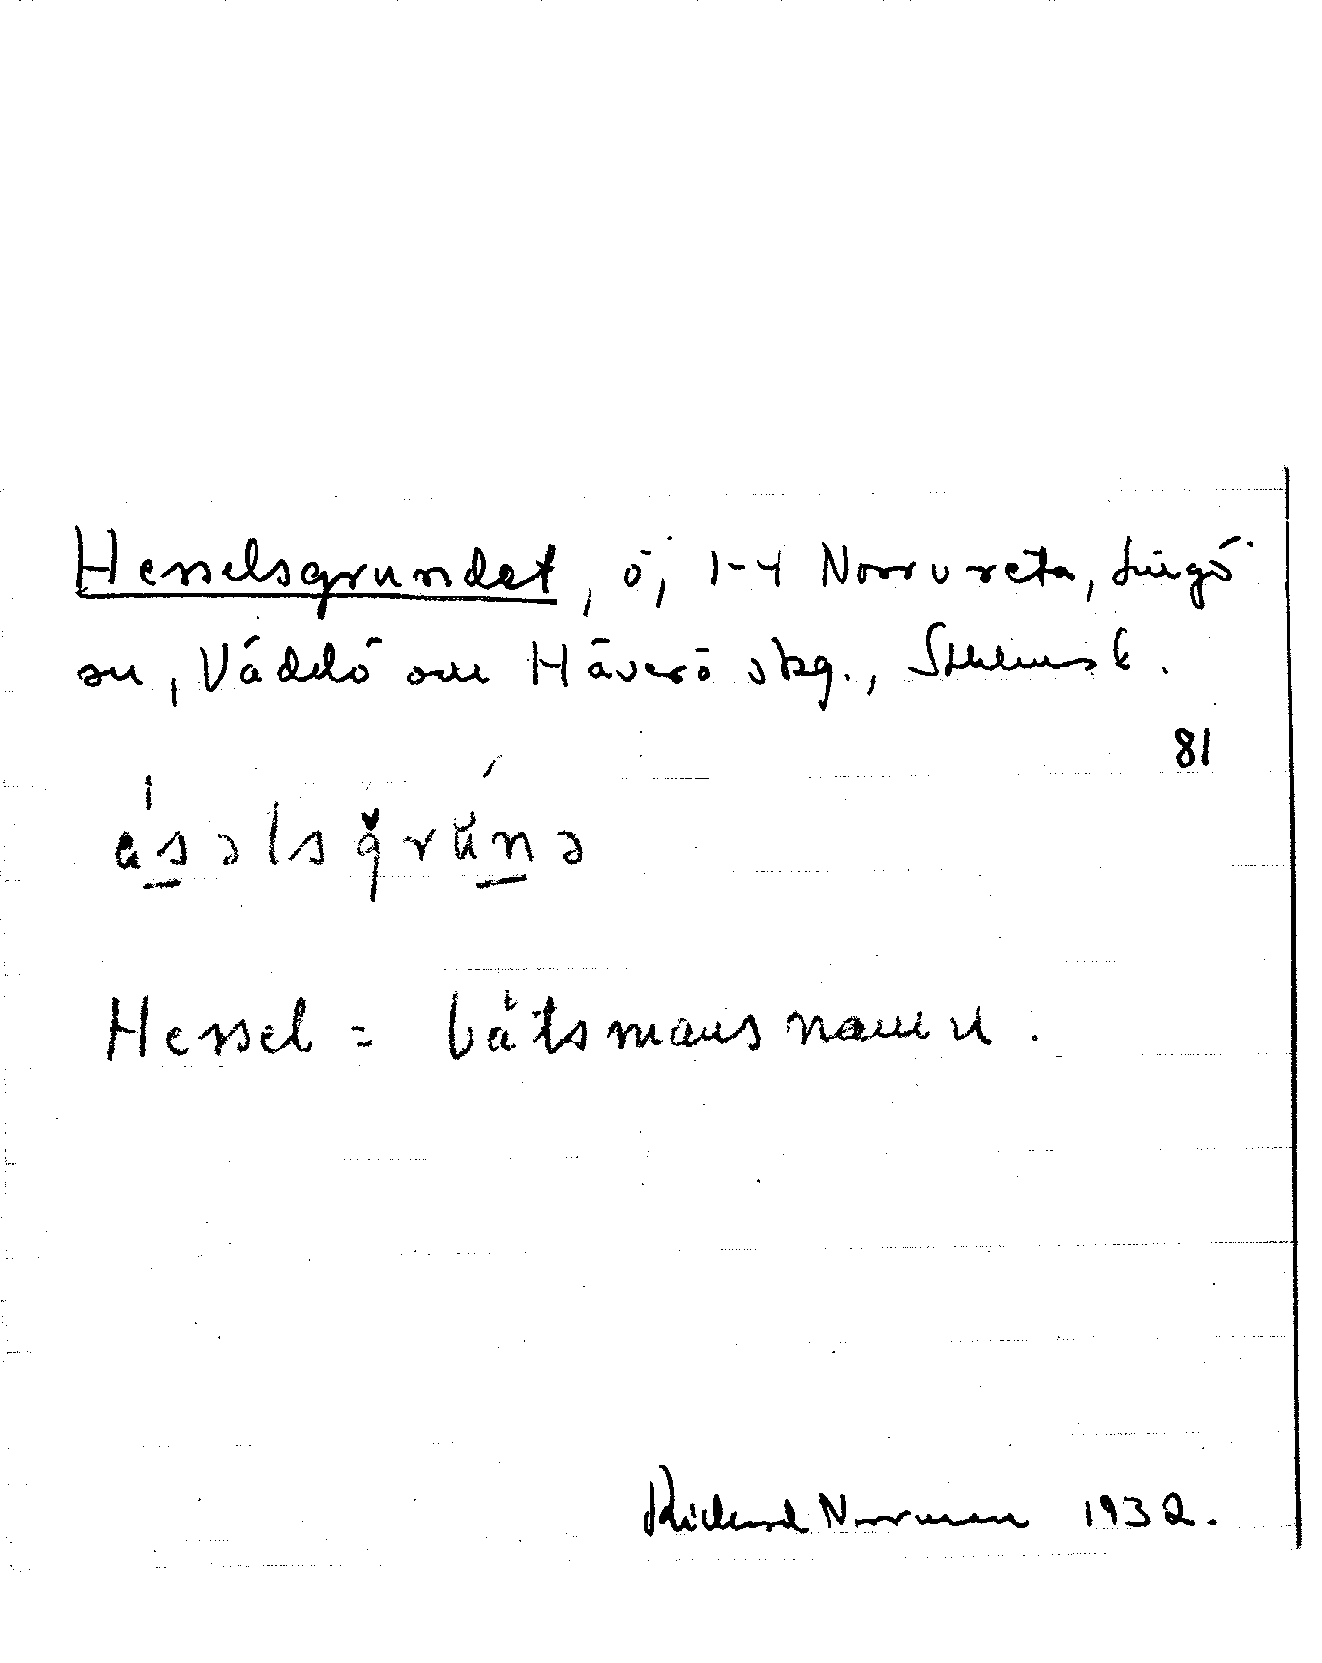 Hesselsgrundet, ö, 1-4 Norrvreta, Singö
sn, Väddö och Häverö skg., Sthlms k.
81
Hessel = båtsmansnamn.
Richard Norrman 1932.